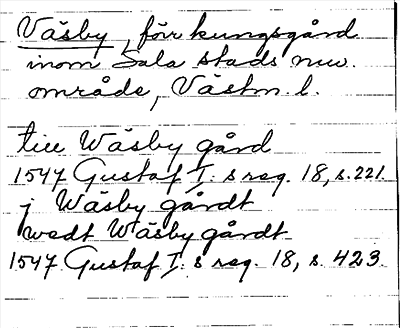 Väsby, förr kungsgård
inom Sala stads nuv.
område, Västm. l.
till Wäsby gård
1547 Gustaf I:s reg. 18, s. 221.
j Wäsby gårdt
wedt Wäsby gårdt
1547 Gustaf I:s reg. 18, s. 423